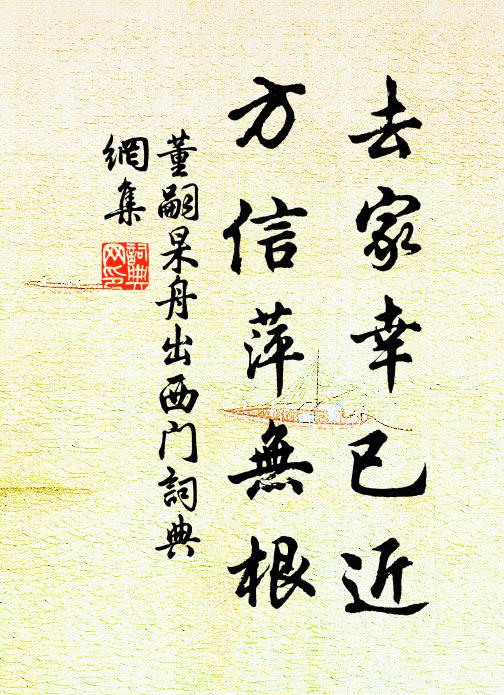 去家幸已近
方信萍無根
董嗣杲舟出西门詞典
網集
詞典
网印